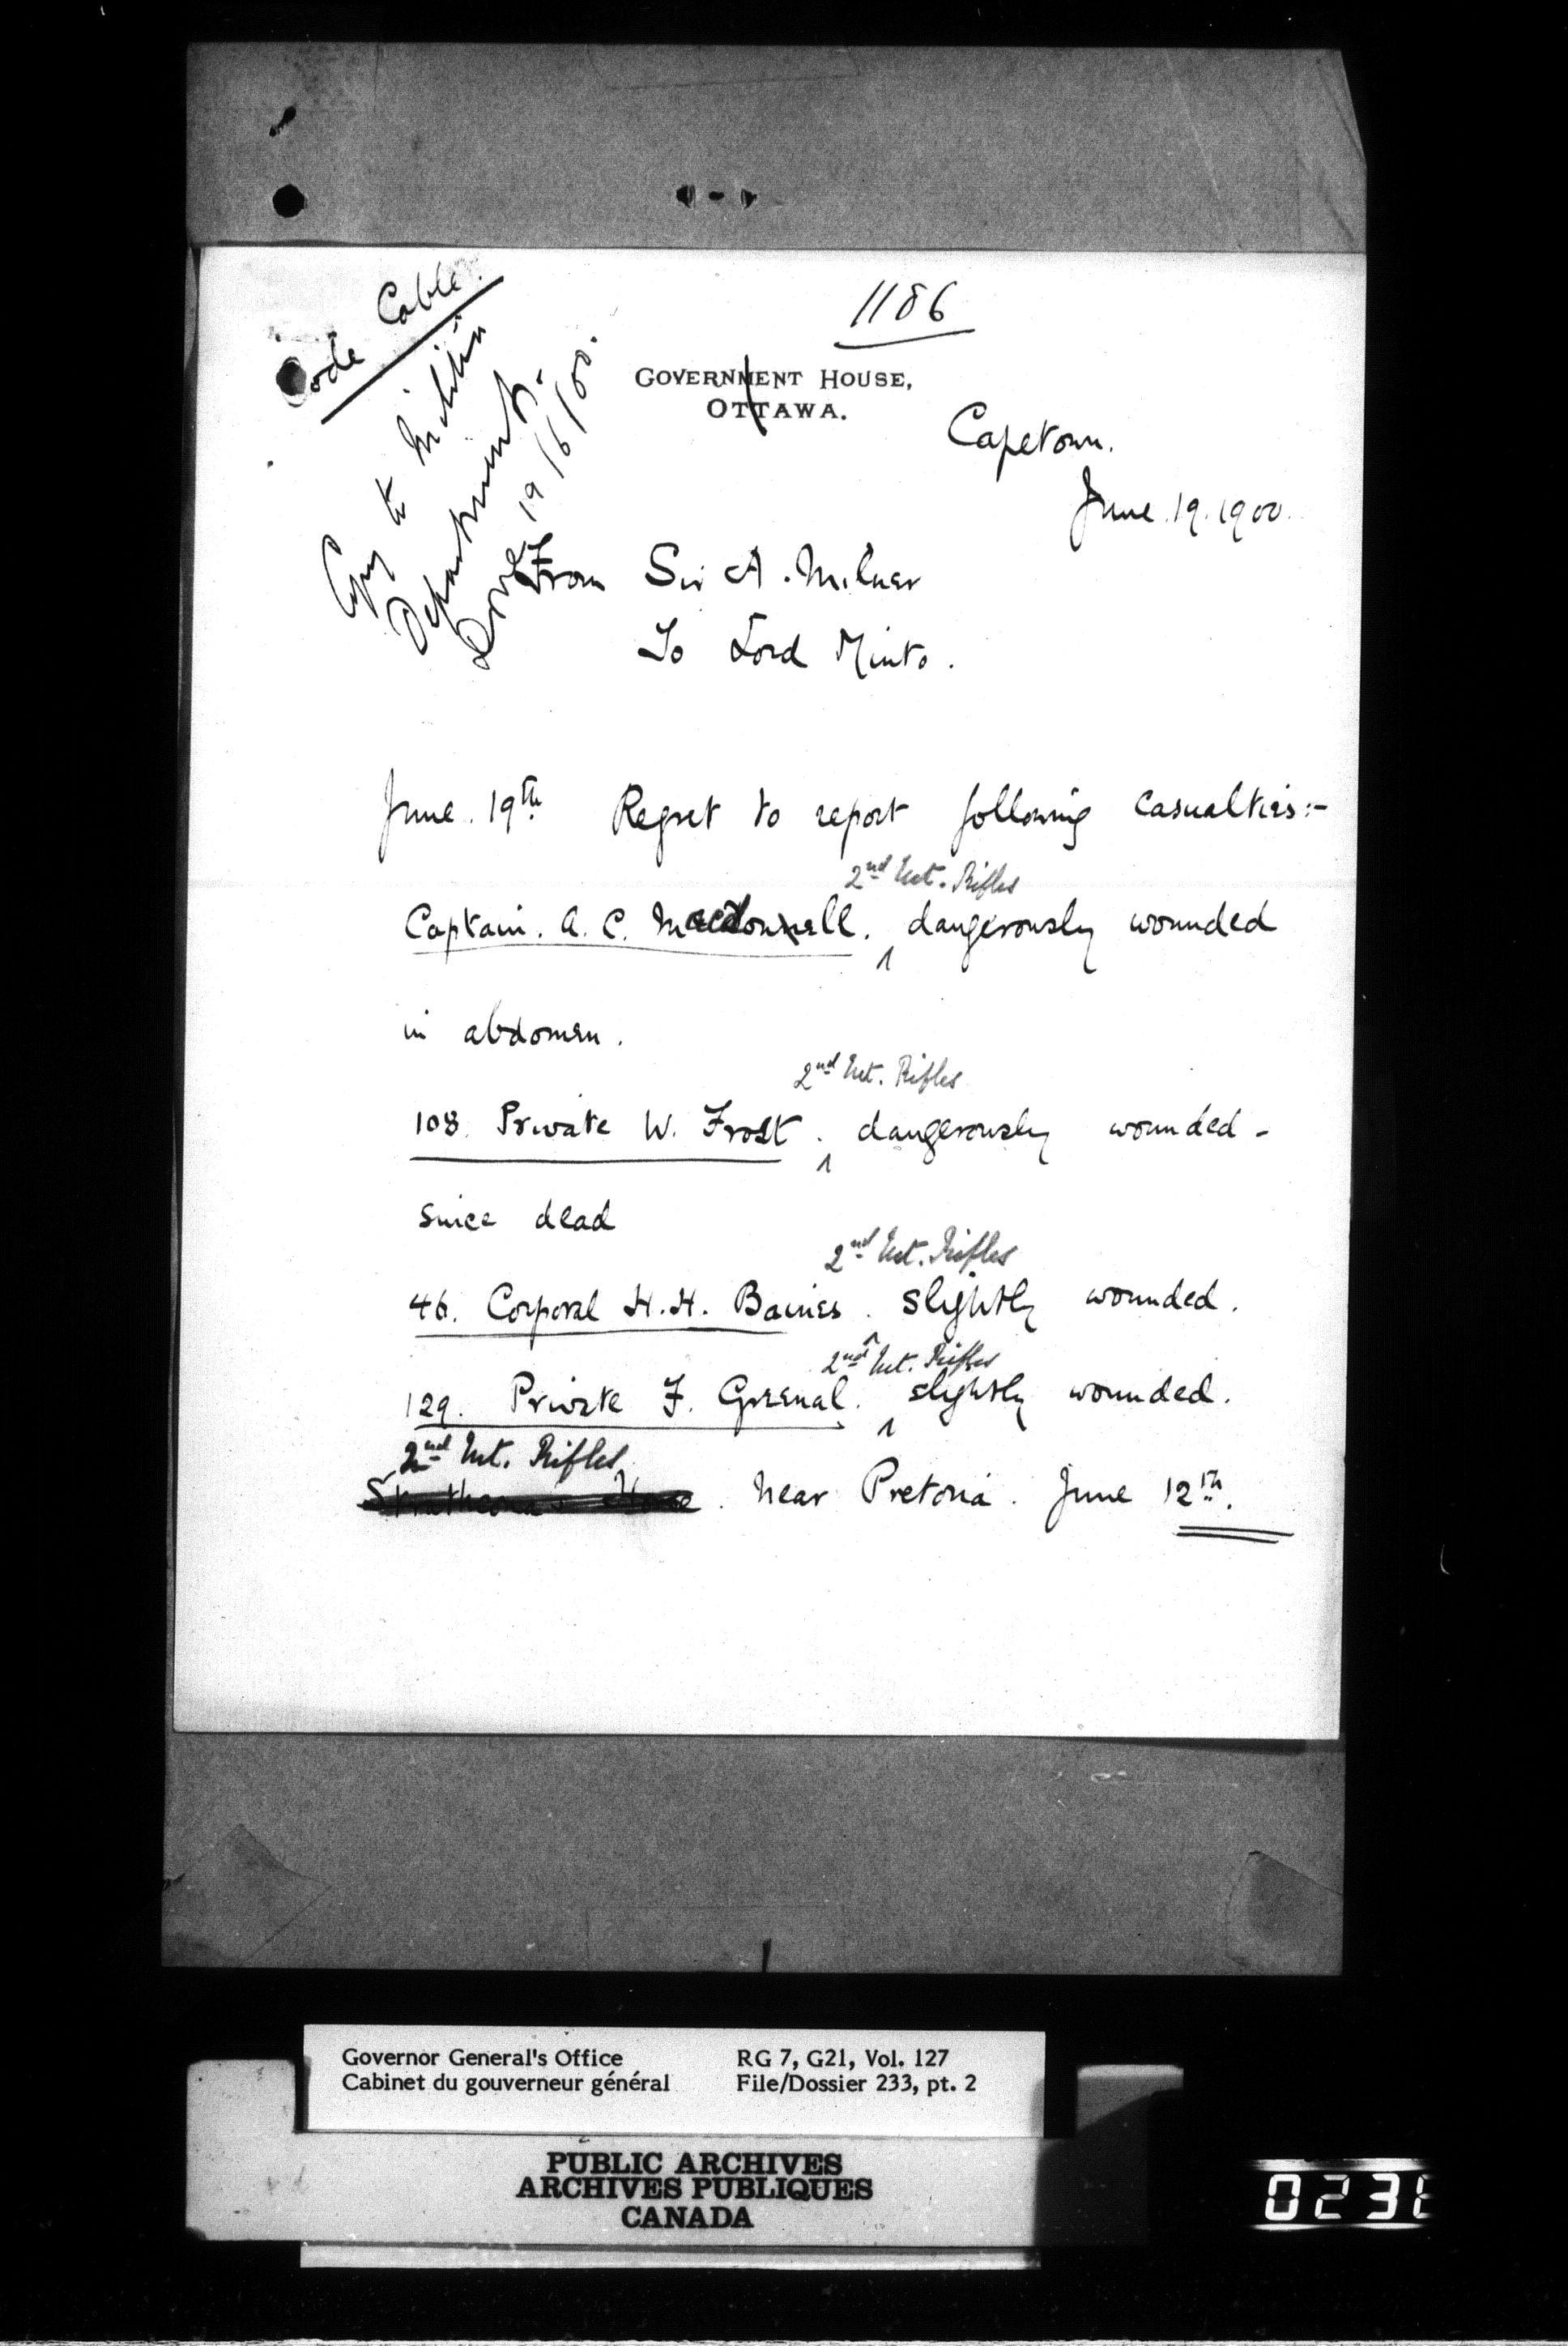 Code Cable.
Copy to Militia
Department.
19/6/00.
1186
GOVERNMENT HOUSE,
OTTAWA.
Capetown.
June.19.1900.
From Sir A. Milner
To Lord Minto.
June.19th. Regret to report following casualties:-
2nd Mt. Rifles
Captain. A. C. Macdonell. dangerously wounded
in abdomen.
2nd Mt. Rifles
108. Private W. Frost. dangerously wounded -
since dead
2nd Mt. Rifles
46. Corporal H.H. Baines. slightly wounded.
2nd Mt. Rifles
129. Private F. Greenal. slightly wounded.
2nd Mt. Rifles
Strathcona's Horse. near Pretoria. June 12th.
Governor General's Office RG 7, G21, Vol. 127
Cabinet du gouverneur général File/Dossier 233, pt. 2
PUBLIC ARCHIVES
ARCHIVES PUBLIQUES
CANADA